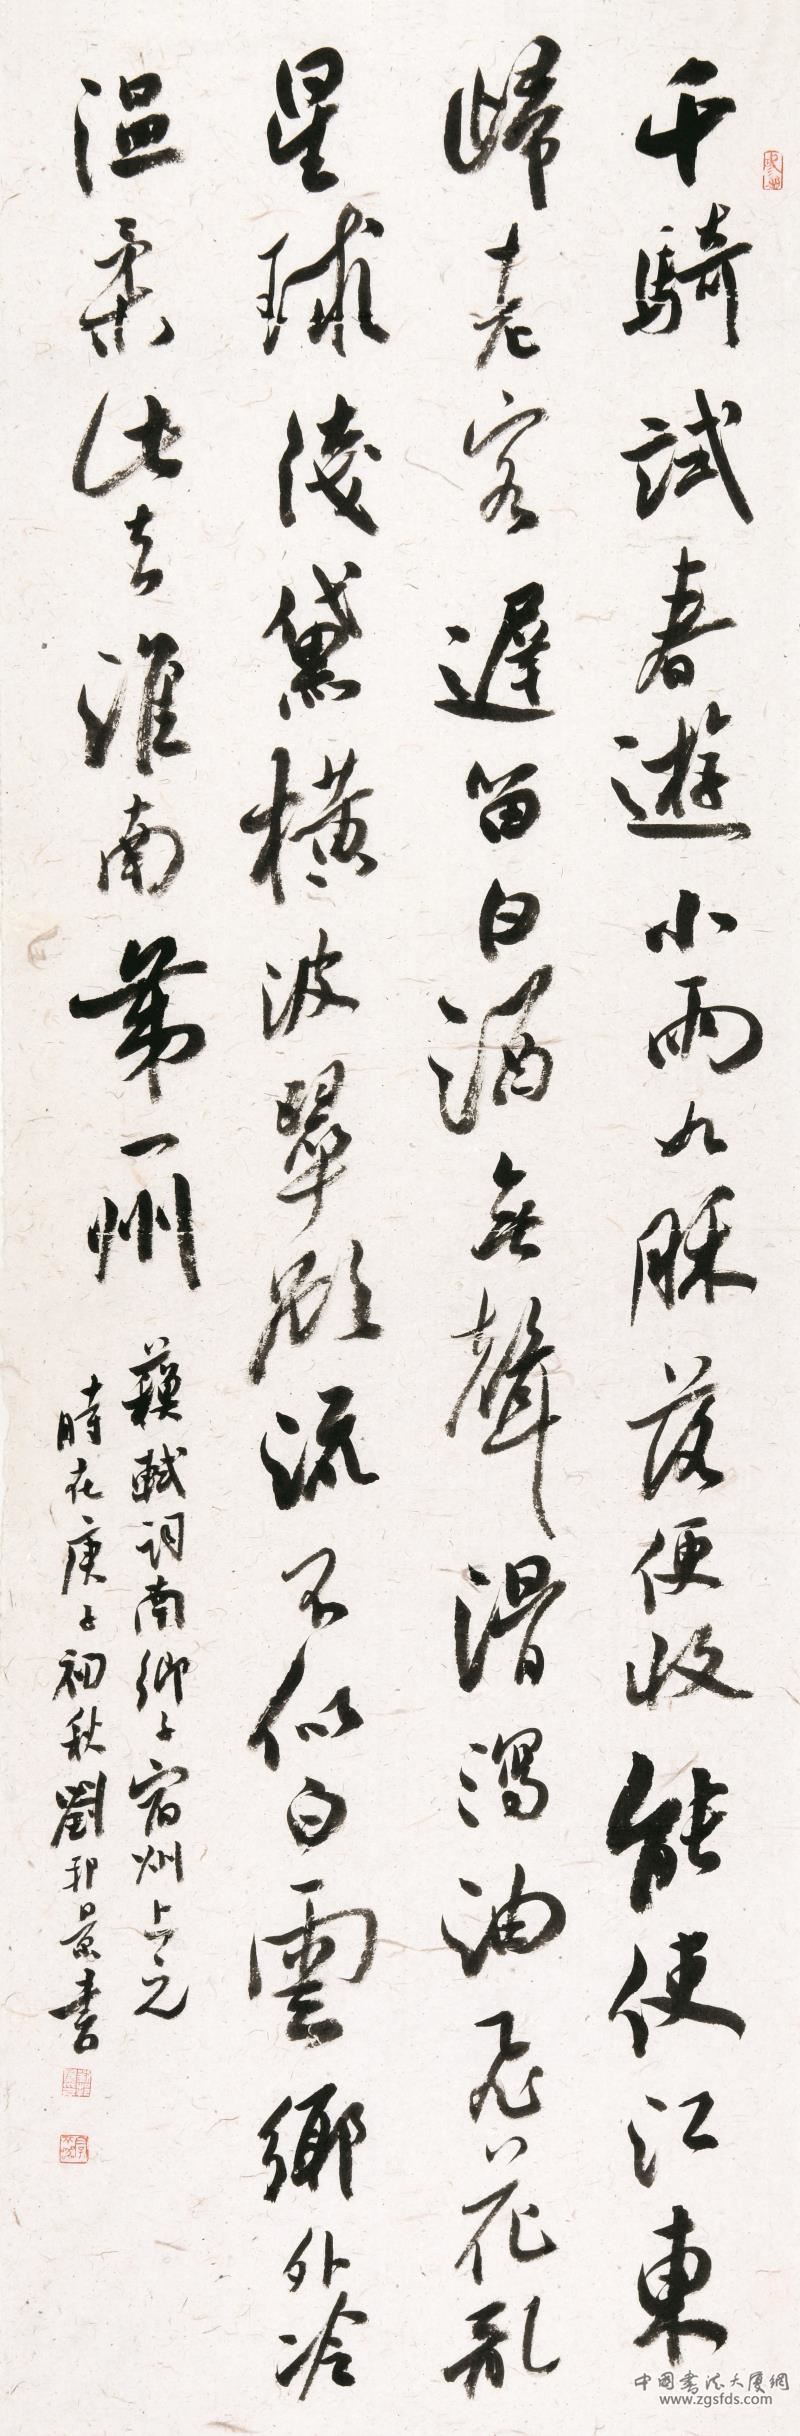 千騎試春遊小雨如酥落便收能使江東
歸老客遲留白酒無聲滑瀉油飛花亂
星球淺黛橫波翠欲流不似白雲鄉外冷
溫柔此去淮南第一州
蘇軾詞南鄉子宿州上元
時在庚子初秋劉邦景書
中國書法大厦網
www.zgsfds.com